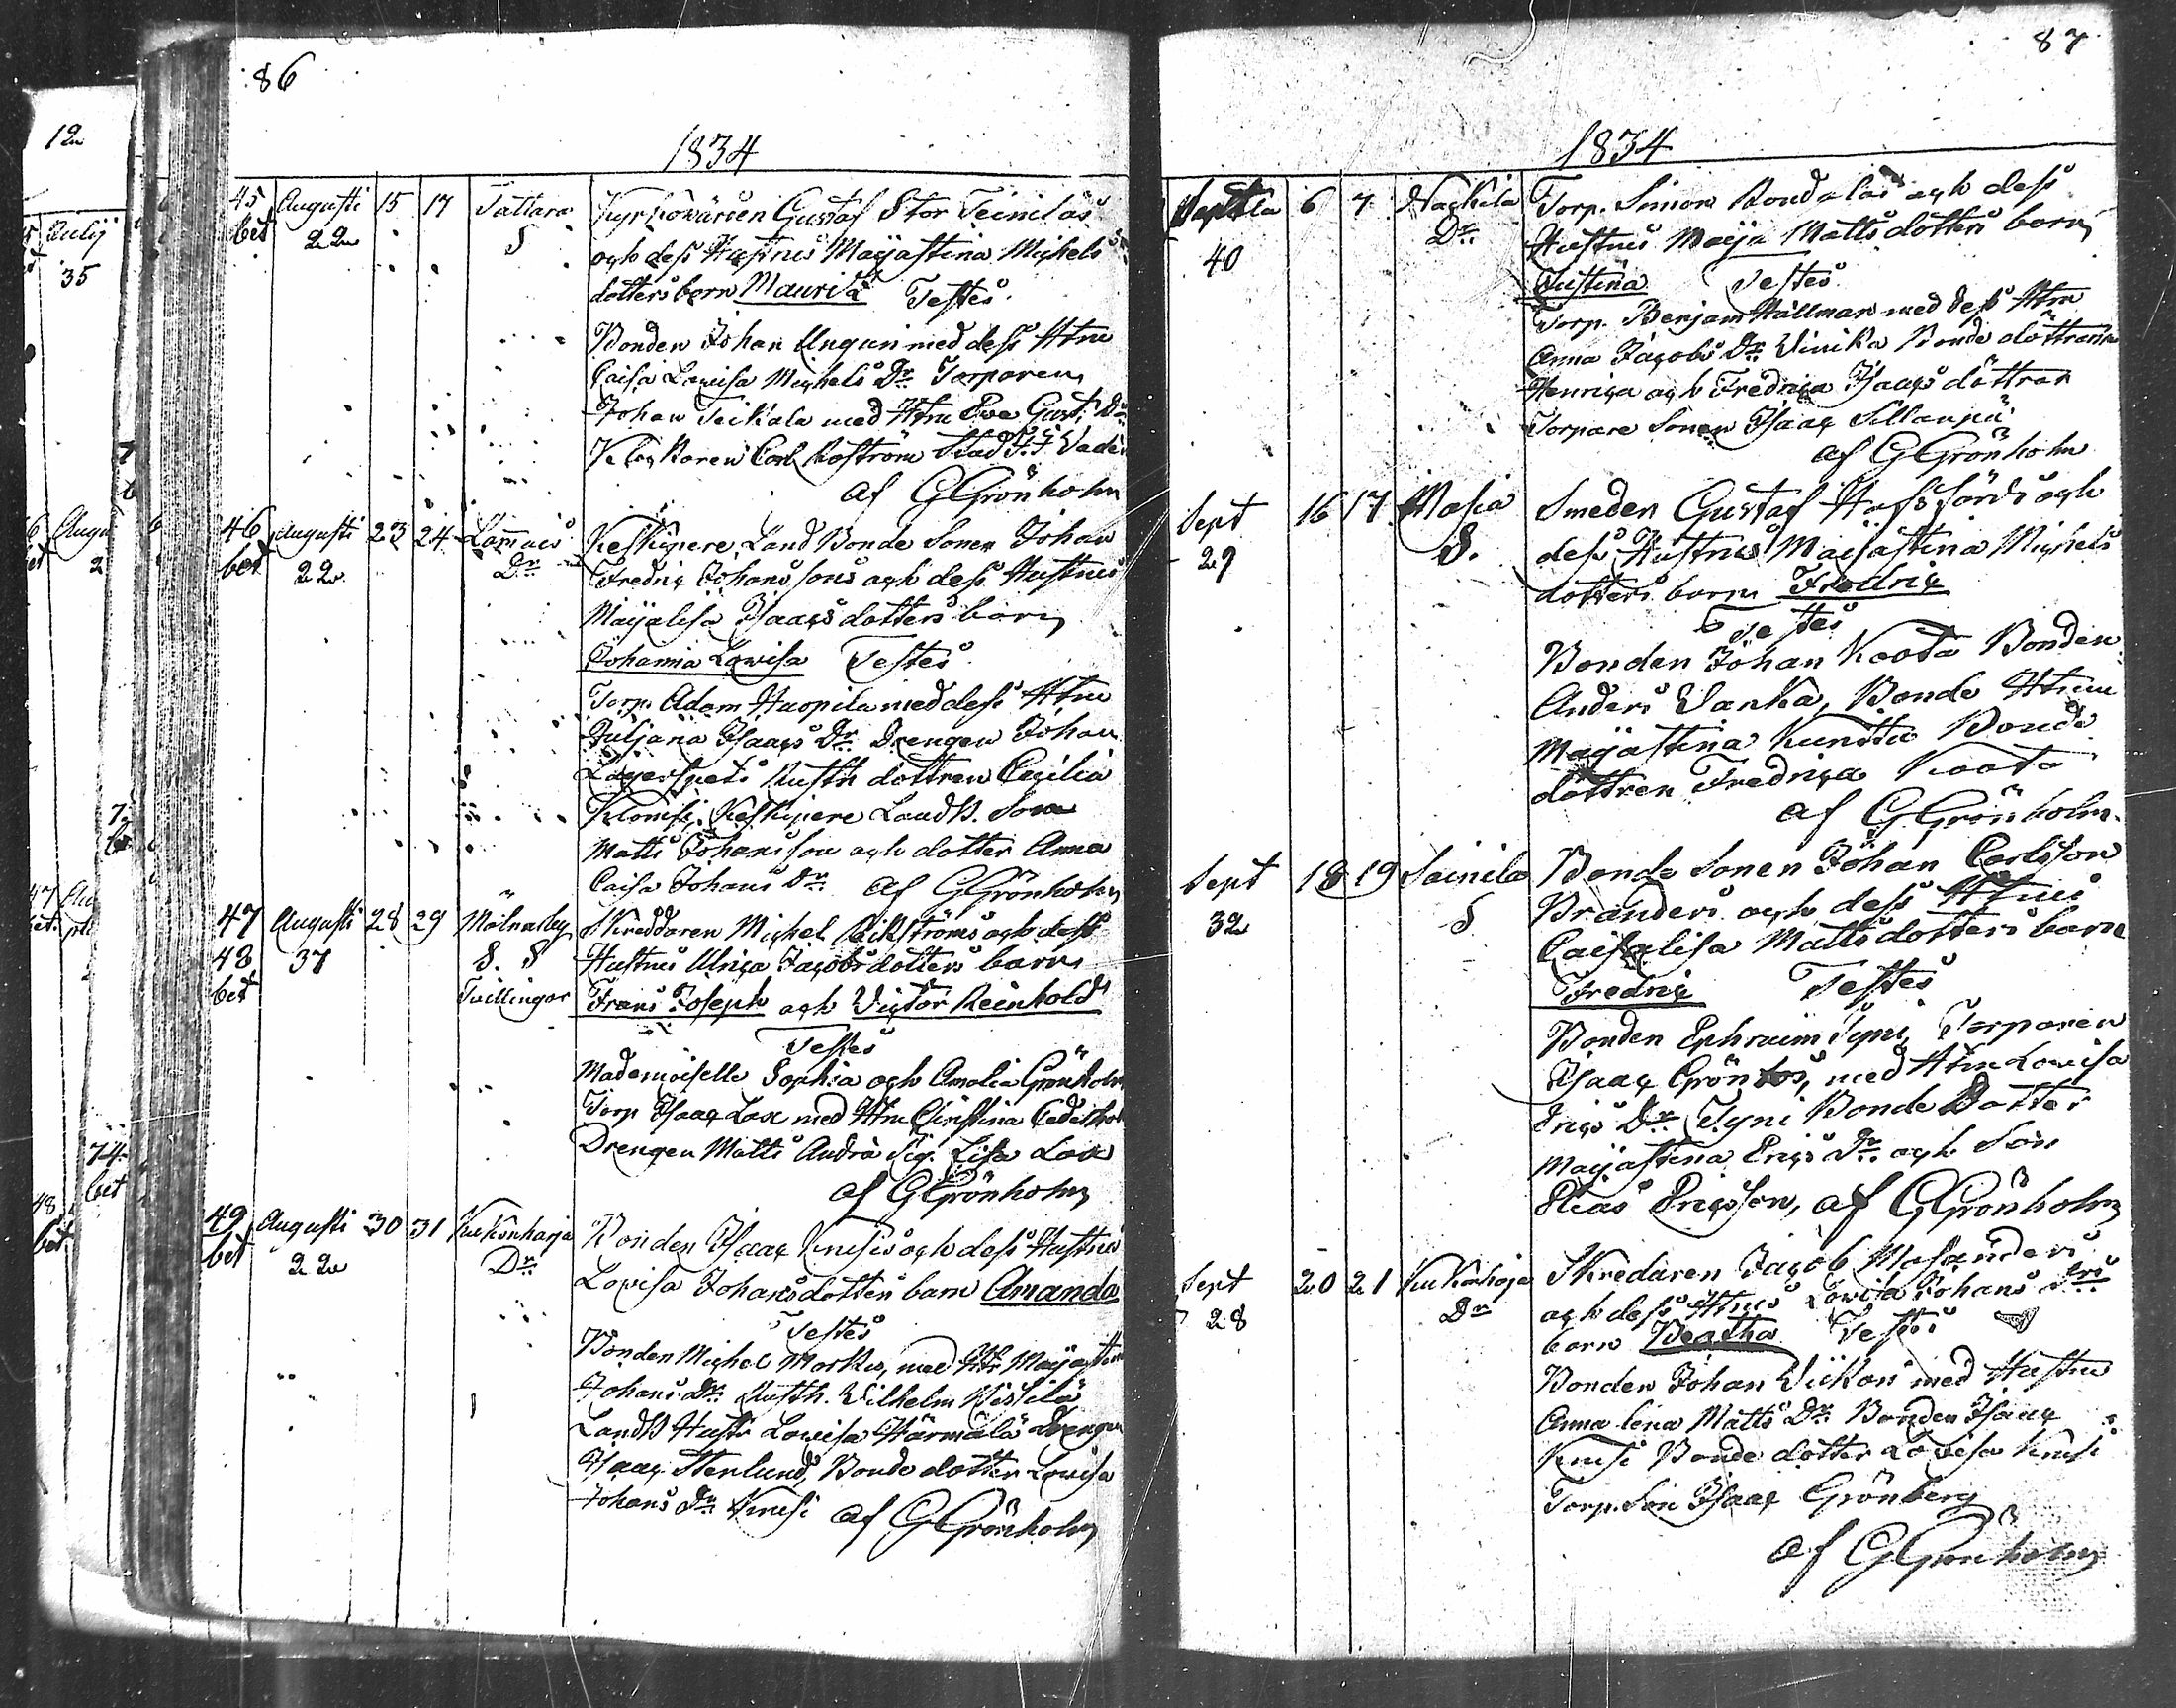 86
1834
45 Augusti 15 17 Tattara Kyrkowärden Gustaf Stor Teinilas
bet 22 S och dess Hustrus Majastina Michels
dotters barn Maurits Testes
Bonden Johan Ungun med dess Htru
Caisa Lovisa Michels Dr Torparen
Johan Teikala med Htru Eva Gust. Dr
Klockaren Carl Roström
af GGrönholm
46 Augusti 23 24 Lammais Keskipere Land Bonde Sonen Johan
bet 22 Dr Fredric Johanssons och dess Hustrus
Majalisa Isaacsdotters barn
Johanna Lovisa Testes
Torp. Adam Huopila med dess Htru
Juljana Isaacs Dr Drengen Johan
Lagerspets Rusth dottren Cecilia
Klomsi, Keskipere Landb. Son
Matts Johansson och dotter Anna
Caisa Johans Dr af GGrönholm
47 Augusti 28 29 Mölnarby Skreddaren Michel Eikströms och dess
48 37 S. S Hustrus Ulrica Jacobsdotters barn
bet Tvillingar Frans Joseph och Victor Reinhold
Testes
Mademoiselle Sophia och Amalia Grönholm
Torp Isaac Lax med Htru Christina
Drengen Matts Andra Pig. Lisa Lax
af GGrönholm
49 Augusti 30 31 Kukonharja Bonden Isaac Knusis och dess Hustrus
bet 22 Dr Lovisa Johansdotters barn Amanda
Testes
Bonden Michel Markus, med Htr Majastina
Johans Dr Rusth. Wilhelm
Landb Hustr Lovisa Härmälä Drengen
Isaac Stenlund, Bonde dotter Lovisa
Johans Dr Knusi af GGrönholm
87
1834
6 7 Nackila Torp. Simon Rondalas och dess
40 Dr Hustrus Maija Mattsdotters barn
Justina Testes
Torp. Benjam Hällman med dess Htru
Anna Jacobs Dr Vinika Bonde dottrarna
Henrica och Fredrica Isaacs döttrar
Torpare Sonen Isaac Sillanpä
af GGrönholm
Sept 16 17 Masia Smeden Gustaf Hafsfords och
29 S. dess Hustrus Majastina Michels
dotters barn Fredric
Testes
Bonden Johan Koota Bonden
Anders Vanha, Bonde Htrun
Majastina Kunstu Bonde
dottren Fredrica Koota
af GGrönholm
Sept 18 19 Soinila Bonde Sonen Johan Carlsson
32 S Branders och dess Htrus
Caisalisa Mattsdotters barn
Fredric Testes
Bonden Ephraim Syni, Torparen
Isaac Gröntos, med Htru Lovisa
Erics Dr Syni Bonde Dotter
Majastina Erics Dr och Son
Elias Ericsson, af GGrönholm
Sept 20 21 Kukonharja Skredaren Jacob Masanders
28 Dr och dess Htrus Lovisa Johans Drs
barn Beatha Testes
Bonden Johan Wikari med Hustru
Anna Lena Matts Dr Bonden Isaac
Knusi Bonde dotter Lovisa Knusi
Torp. Son Isaac Grönberg
af GGrönholm